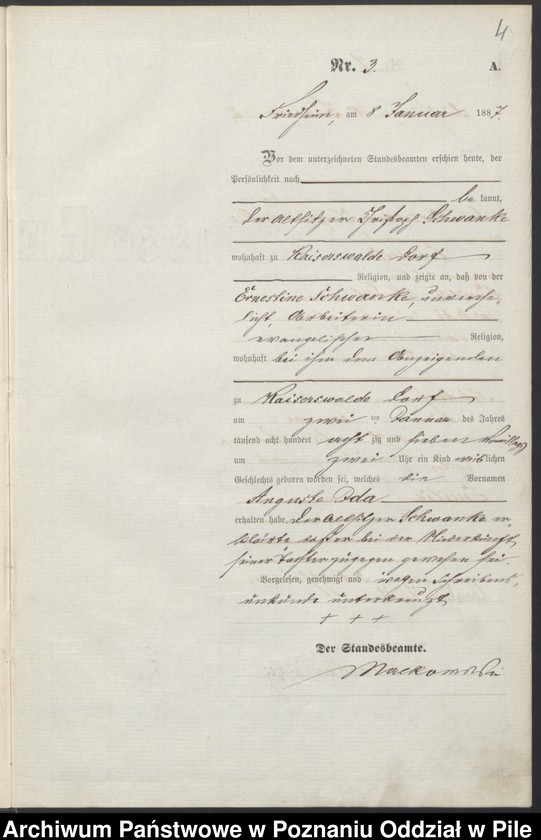 4
Nr. 3. A.
Friedheim, am 8 Januar 1887.
Vor dem unterzeichneten Standesbeamten erschien heute, der
Persönlichkeit nach
be kannt,
der Altsitzer Christoph Schwanke
wohnhaft zu Kaiserswalde Dorf
Religion, und zeigte an, daß von der
Ernestine Schwanke, unverehe-
licht, Arbeiterin
evangelischer Religion,
wohnhaft bei ihm dem Anzeigenden
zu Kaiserswalde Dorf
am zwei ten Januar des Jahres
tausend acht hundert acht zig und sieben Vormittags
um zwei Uhr ein Kind weiblichen
Geschlechts geboren worden sei, welches die Vornamen
Auguste Ida
erhalten habe. Der Altsitzer Schwanke er-
klärte daß er bei der Niederkunft
seiner Tochter zugegen gewesen sei.
Vorgelesen, genehmigt und wegen Schreibens-
unkunde unterkreuzt
+ + +
Der Standesbeamte.
Mackowski
Archiwum Państwowe w Poznaniu Oddział w Pile